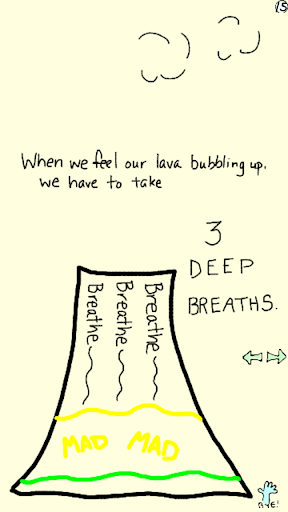 15
When we feel our lava bubbling up.
we have to take
3
DEEP
BREATHS.
Breathe Breathe Breathe
MAD MAD
BYE!